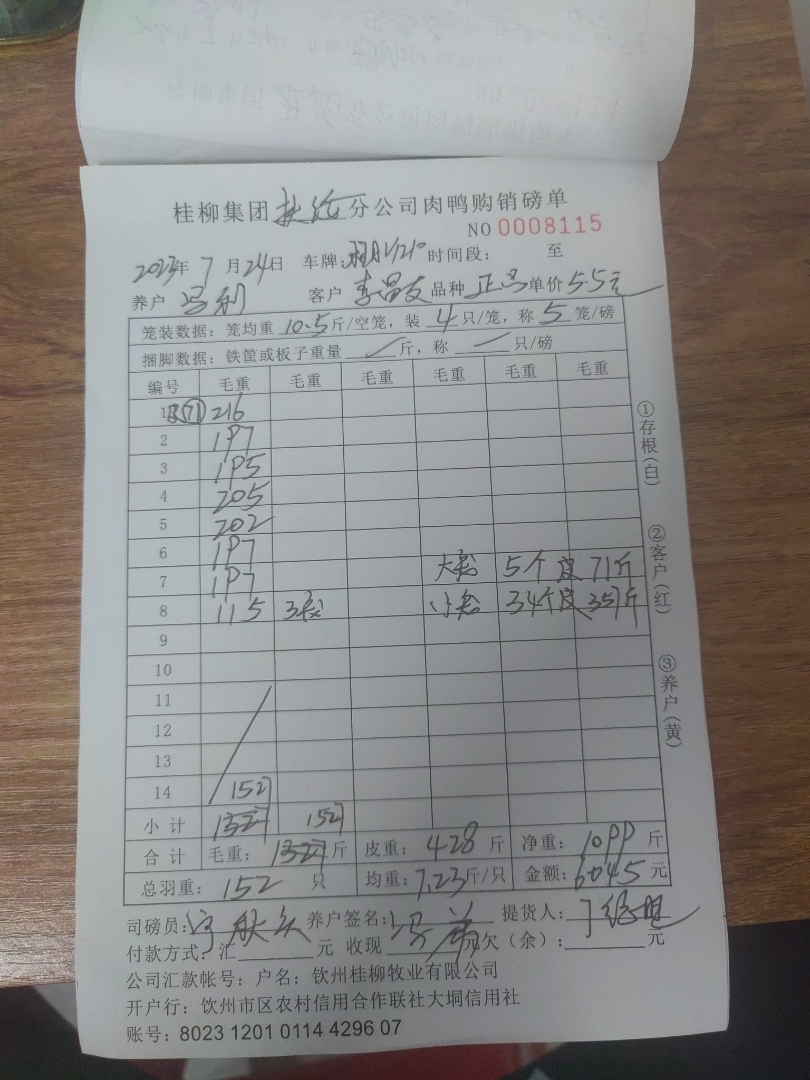 桂柳集团 分公司肉鸭购销磅单
NO 0008115
2023年 7 月 24日 车牌: 时间段: 至
养户 客户 李昌友 品种 正品 单价 5.5元
笼装数据:笼均重 10.5 斤/空笼,装 4 只/笼,称 5 笼/磅
捆脚数据:铁筐或板子重量 斤,称 只/磅
编号 毛重 毛重 毛重 毛重 毛重 毛重
1 皮(71) 216
2 197
3 195
4 205
5 202
6 197
7 197 大 5个 皮 71斤
8 115 3 小 34个 皮 357斤
9
10
11
12
13
14 1527
小计 1527
合计 毛重: 斤 皮重: 428 斤 净重: 1099 斤
总羽重: 152 只 均重: 7.23斤/只 金额: 6045 元
司磅员: 养户签名: 提货人:
付款方式:汇 元 收现 元欠(余): 元
公司汇款帐号:户名:钦州桂柳牧业有限公司
开户行:钦州市区农村信用合作联社大垌信用社
账号:8023 1201 0114 4296 07
①存根(白)
②客户(红)
③养户(黄)